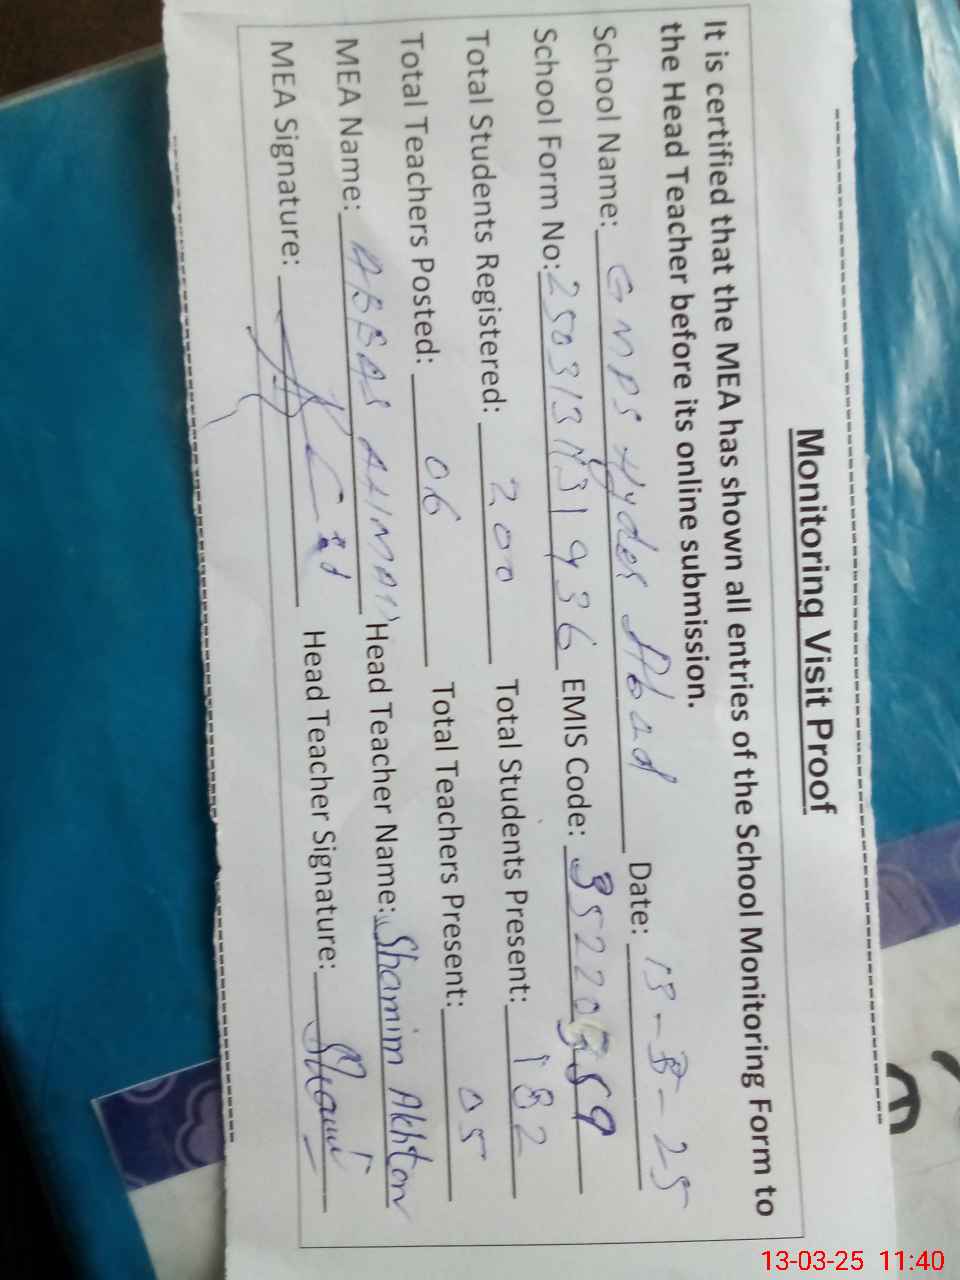 Monitoring Visit Proof
It is certified that the MEA has shown all entries of the School Monitoring Form to
the Head Teacher before its online submission.
School Name: GMPS Hyder Abad Date: 13-3-25
School Form No: EMIS Code:
Total Students Registered: 200 Total Students Present: 182
Total Teachers Posted: 06 Total Teachers Present: 05
MEA Name: ABBAS Head Teacher Name: Shamim Akhtar
MEA Signature: Head Teacher Signature:
13-03-25 11:40